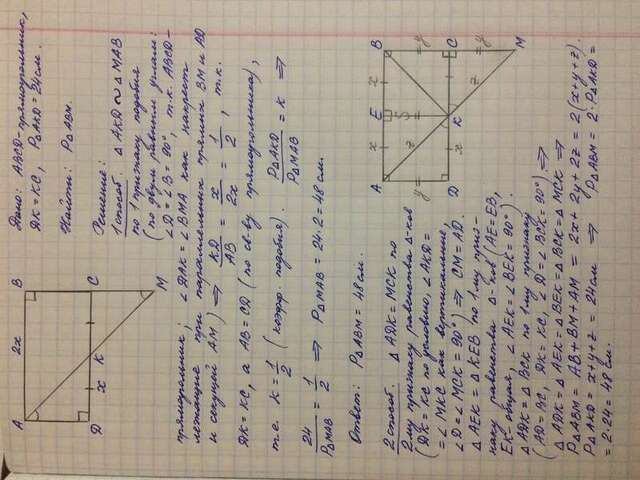 Дано: ABCD-прямоугольник,
DK = KC, P△AKD = 24см.
Найти: P△ABM.
Решение:
1 способ. △AKD ~ △MAB
по 1 признаку подобия
(по двум равным углам:
∠D = ∠B = 90°, т.к. ABCD-
прямоугольник; ∠DAK = ∠BMA как накрест
лежащие при параллельных прямых BM и AD
и секущей AM) ⇒ KD/AB = x/2x = 1/2, т.к.
DK = KC, а AB = CD (по св-ву прямоугольника),
т.е. k = 1/2 (коэфф. подобия). P△AKD/P△MAB = k ⇒
24/P△MAB = 1/2 ⇒ P△MAB = 24·2 = 48 см.
Ответ: P△ABM = 48см.
A
B
2x
D
x
K
C
M
2 способ. △ADK = △MCK по
2му признаку равенства △-ков
(DK = KC по условию, ∠AKD =
= ∠MKC как вертикальные,
∠D = ∠MCK = 90°) ⇒ CM = AD.
△AEK = △KEB по 1му приз-
наку равенства △-ков (AE = EB,
EK-общая, ∠AEK = ∠BEK = 90°).
△ADK = △BCK по 1му признаку
(AD = BC, DK = KC, ∠D = ∠BCK = 90°) ⇒
△ADK = △AEK = △BEK = △BCK = △MCK ⇒
P△ABM = AB + BM + AM = 2x + 2y + 2z = 2(x+y+z)
P△AKD = x+y+z = 24см ⇒ P△ABM = 2·P△AKD =
= 2·24 = 48 см.
A
x
E
x
B
y
y
S
z
K
z
y
D
x
C
M